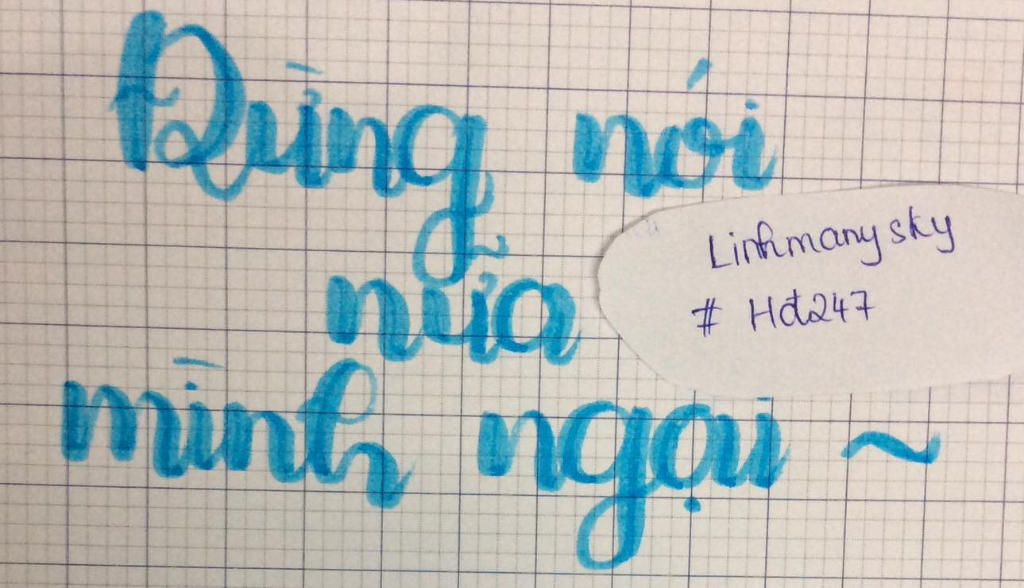 Đừng nói
nữa
mình ngại ~
Linhmanysky
# Hđ247